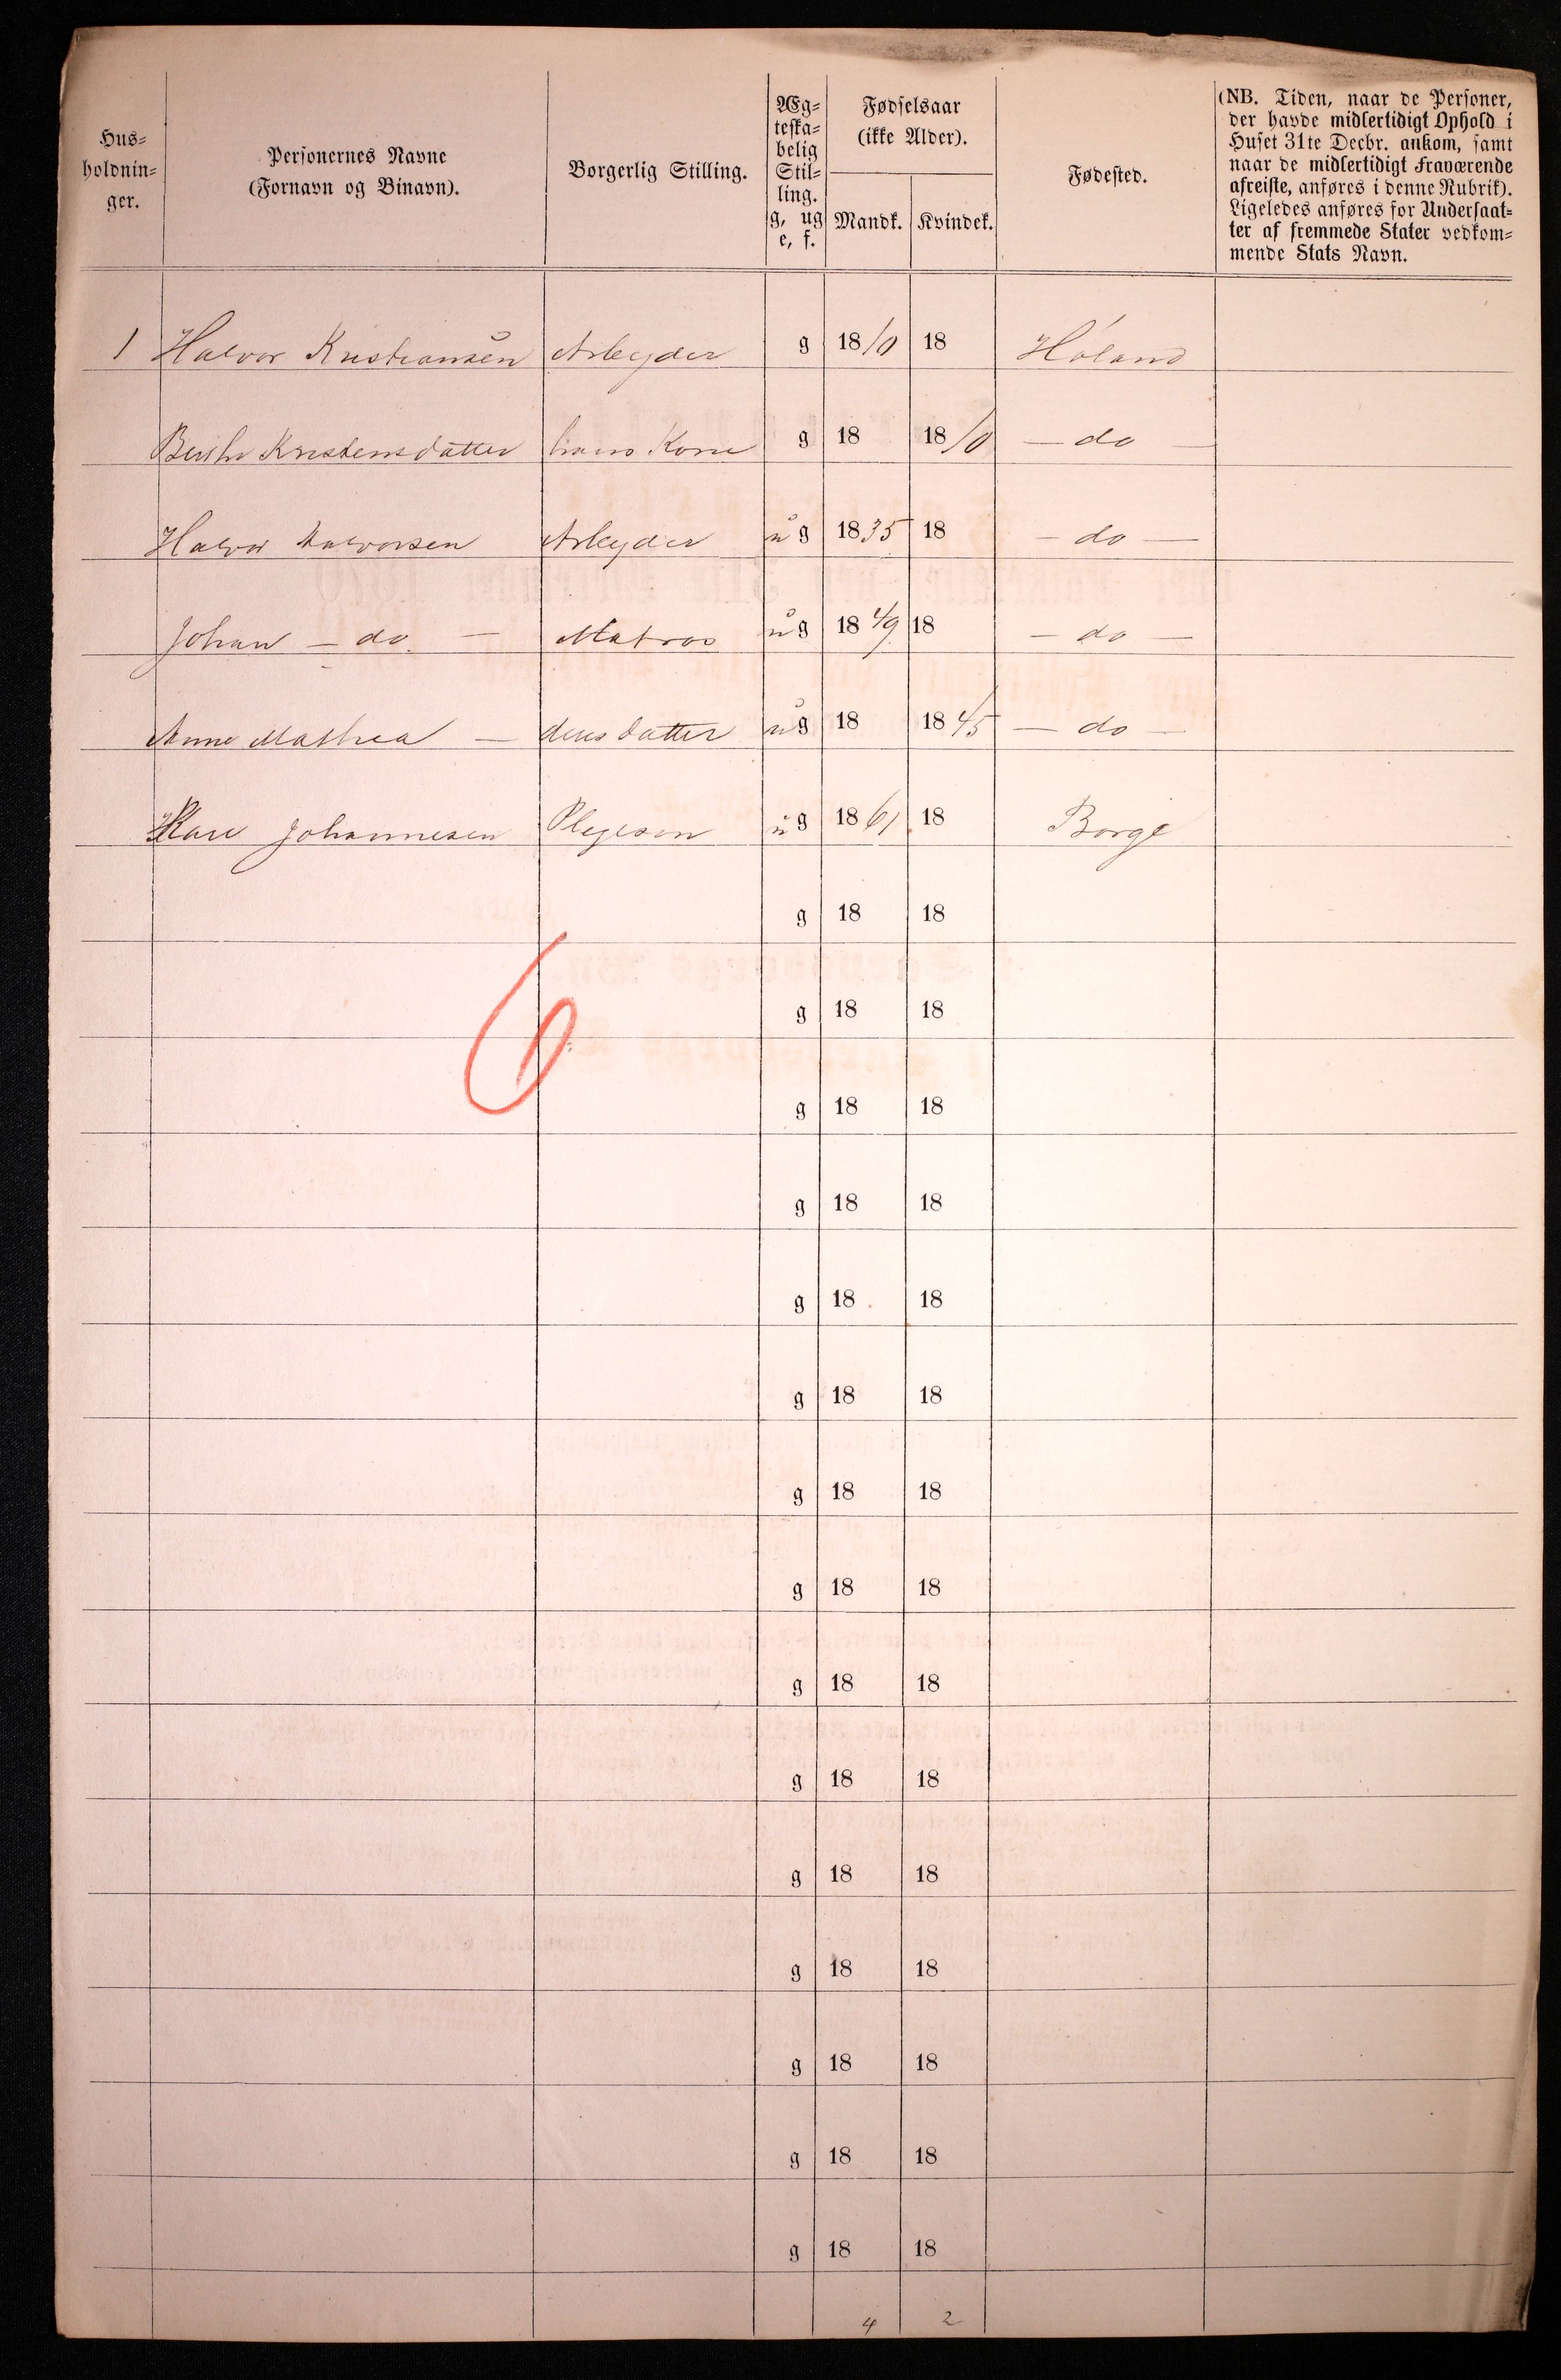 Hus-
holdnin-
ger.
Personernes Navne
(Fornavn og Binavn).
Borgerlig Stilling.
Æg-
teska-
belig
Stil-
ling.
g, ug
e, f.
Fødselsaar
(ikke Alder).
Mandk. Kvindek.
Fødested.
(NB. Tiden, naar de Personer,
der havde midlertidigt Ophold i
Huset 31te Decbr. ankom, samt
naar de midlertidigt Fraværende
afreiste, anføres i denne Rubrik).
Ligeledes anføres for Undersaat-
ter af fremmede Stater vedkom-
mende Stats Navn.
1 Halvor Kristiansen Arbeyder g 1810 18 Høland
Berthe Kristensdatter hans Kone g 18 1810 — do —
Halvor Halvorsen Arbeyder ug 1835 18 — do —
Johan — do. — Matros ug 1849 18 — do —
Anne Mathea — deres datter ug 18 1845 — do —
Johannesen Plejesøn ug 1861 18 Borge
g 18 18
6
g 18 18
g 18 18
g 18 18
g 18 18
g 18 18
g 18 18
g 18 18
g 18 18
g 18 18
g 18 18
g 18 18
g 18 18
g 18 18
g 18 18
4 2